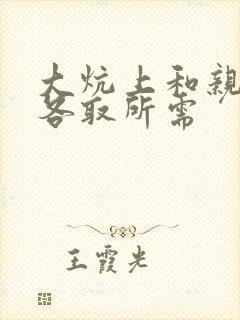 大炕上和亲
各取所需
王霞光